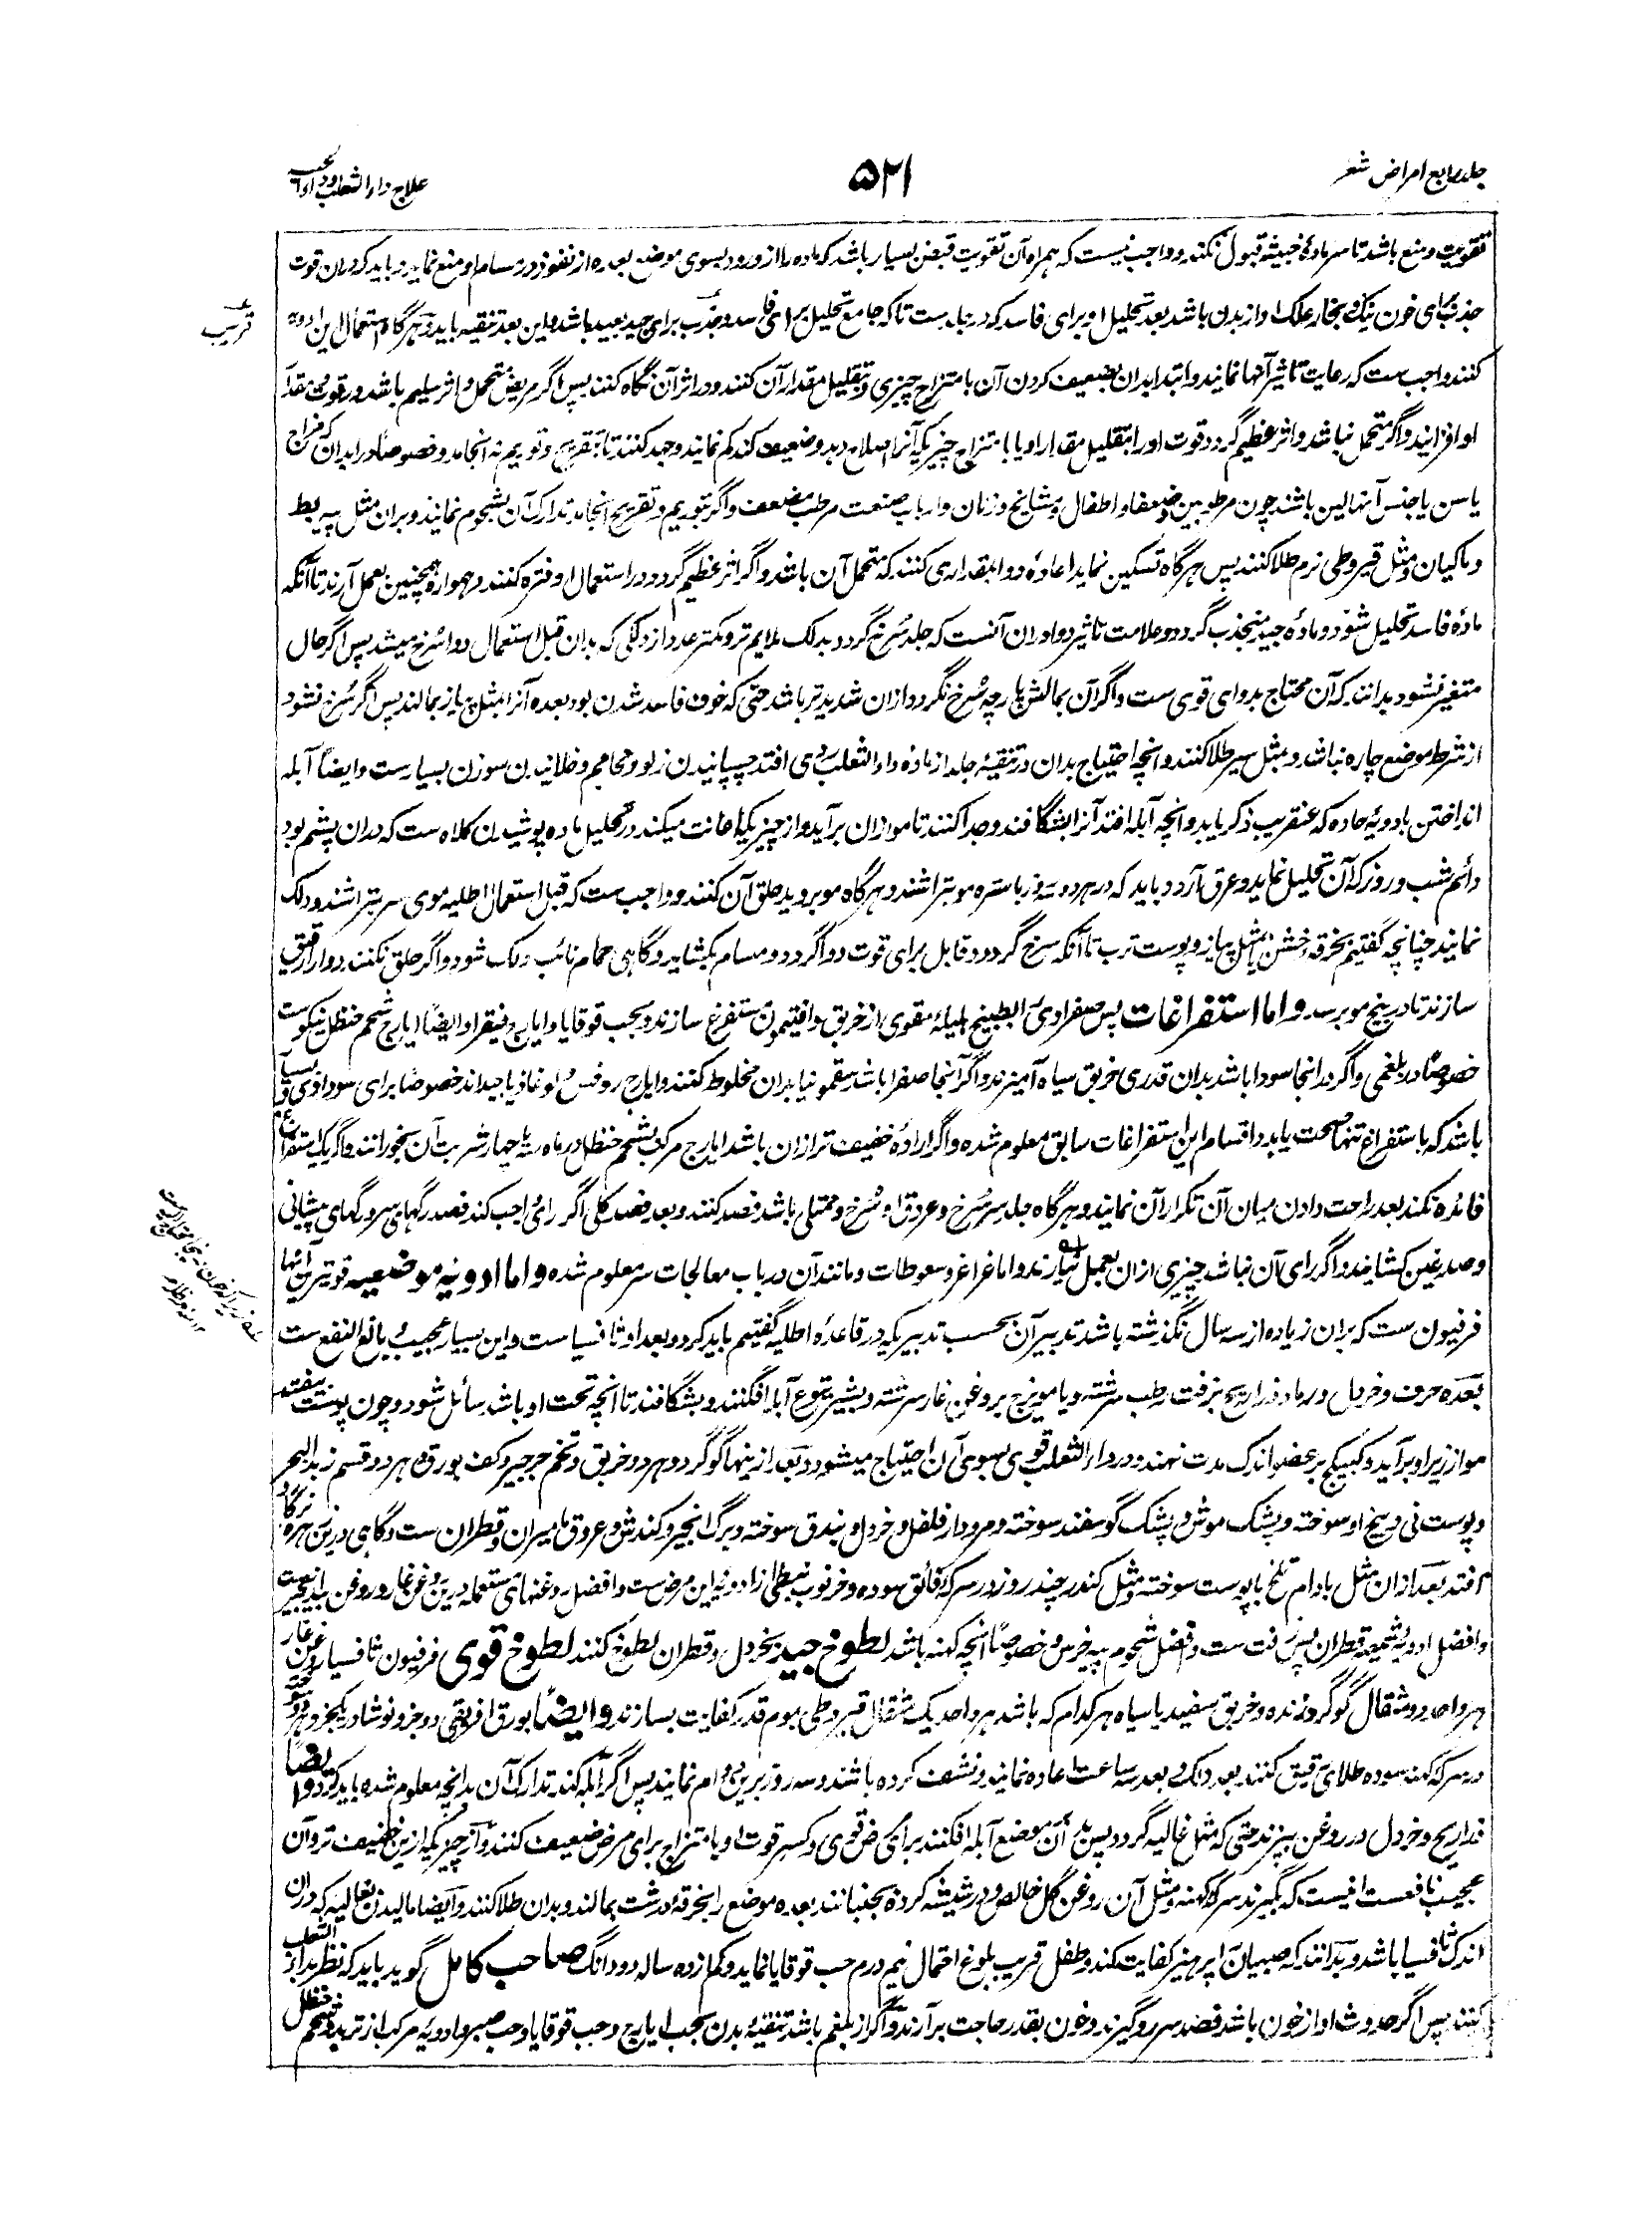 جلد رابع امراض شعر
۵۲۱
علاج داء الثعلب و داء الحیه
تقویت و منع باشد تا سر مادهٔ خبیثه قبول نکند و واجب نیست که همراه آن تقویت قبض بسیار باشد که ماده را از ورود بسوی موضع بعده از نفوذ در مسام او منع نماید و باید که دران قوت
جذب برای خون نیک و بخار علک او از بدن باشد بعد تحلیل او برای فاسد که در باب ست تا که جامع تحلیل برای فاسد و جذب برای جید بعید باشد و این بعد تنقیه باید و هرگاه استعمال این ادویه
قریب
کنند واجب ست که رعایت تاثیر آنها نمایند و ابتدا بدان بضعیف کردن آن بامتزاج چیزی و تقلیل مقدار آن کنند و در اثر آن نگاه کنند پس اگر مریض متحمل و اثر سلیم باشد در قوت و مقدار
او افزایند و اگر متحمل نباشد و اثر عظیم گردد قوت او را بتقلیل مقدار او یا بامتزاج چیزیکه آنرا اصلاح دهد و ضعیف کند کم نمایند و جهد کنند تا بتقریح و تویم نه انجامد و خصوصاً در ابدان که مزاج
یا سن یا جنس آنها لین باشد چون مرطوبین و ضعفا و اطفال و مشایخ و زنان و ارباب صنعت مرطب مضعف و اگر بتوریم و تقریح انجامد تدارک آن بشحوم نمایند و بران مثل پیه بط
و ماکیان و مثل قیروطی نرم طلا کنند پس هرگاه تسکین نماید اعادهٔ دوا بمقداری کنند که متحمل آن باشد و اگر اثر عظیم گردد در استعمال او فتره کنند و همواره همچنین بعمل آرند تا آنکه
مادهٔ فاسد تحلیل شود و مادهٔ جید منجذب گردد و علامت تاثیر دوا دران آنست که جلد سرخ گردد بدلک ملایم تر و کمتر عدد از دلکی که بدان قبل استعمال دوا سرخ میشد پس اگر حال
متغیر نشود بدانند که آن محتاج بدوای قوی ست و اگر آن بمالش پارچه سرخ نگردد ازان شدید تر باشد حتی که خوف فاسد شدن بود بعده آنرا بمثل پیاز بمالند پس اگر سرخ نشود
از شرط موضع چاره نباشد و بمثل سیر طلا کنند و آنچه احتیاج بدان در تنقیهٔ جلد از مادهٔ داء الثعلب ردی افتد چسپانیدن زلو و محاجم و خلانیدن سوزن بسیارست و ایضاً آبله
انداختن بادویهٔ حاده که عنقریب ذکر یابد و آنچه آبله افتد آنرا بشگافند و جدا کنند تا مو ازان برآید و از چیزیکه اعانت میکند در تحلیل ماده پوشیدن کلاه ست که دران پشم بود
دائم شب و روز که آن تحلیل نماید و عرق آرد و باید که در هر دو سه روز باستره مو بتراشند و هرگاه مو بروید حلق آن کنند و واجب ست که قبل استعمال اطلیه موی سر بتراشند و دلک
نمایند چنانچه گفتیم بخرقه خشن یا مثل پیاز و پوست ترب تا آنکه سرخ گردد و قابل برای قوت دوا گردد و مسام بکشاید و گاهی حمام نائب دلک شود و اگر حلق نکنند دوا را رقیق
سازند تا در بیخ مو برسد و اما استفراغات پس صفراوی را بطبیخ هلیلهٔ مقوی از خربق و افتیمون مستفرغ سازند و بحب قوقایا و ایارج فیقرا و ایضاً ایارج شحم حنظل نیکوست
خصوصاً در بلغمی و اگر در انجا سودا باشد بدان قدری خربق سیاه آمیزند و اگر آنجا صفرا باشد سقمونیا بدان مخلوط کنند و ایارج روفس و لوغاذیا جید اند خصوصاً برای سوداوی و بسیار
باشد که باستفراغ تنها صحت یابد و اقسام این استفراغات سابق معلوم شده و اگر ارادهٔ خفیف تر ازان باشد ایارج مرکب بشحم حنظل در ماه سه یا چهار شربت آن بخورانند و اگر یک استفراغ
فائده نکند بعد راحت دادن میان آن تکرار آن نمایند و هرگاه جلد سر سرخ و عروق او سرخ و ممتلی باشد فصد کنند و بعد فصد کلی اگر رای واجب کند فصد رگهای سر و رگهای پیشانی
و صدغین کشایند و اگر رای آن نباشد چیزی ازان بعمل نیارند و اما غراغر و سعوطات و مانند آن در باب معالجات سر معلوم شده و اما ادویه موضعیه قوترین آنها
فرفیون ست که بران زیاده از سه سال نگذشته باشد تدبیر آن بحسب تدبیریکه در قاعدهٔ اطلیه گفتیم باید کرد و بعد او ثافسیا ست و این بسیار عجیب و بالغ النفع ست
بعده حرف و خردل و رماد ذراریح بزفت رطب سرشته و یا مویزج بروغن غار سرشته و بشیر یتوع آبله افگنند و بشگافند تا آنچه تحت او باشد سائل شود و چون پوست بیفتد
مو از زیر او برآید و کبیکج بر عضو اندک مدت نهند و در داء الثعلب قوی بسوی آن احتیاج میشود و بعد ازینها گوگرد و هر دو خربق و تخم جرجیر و کف بورق و هر دو قسم زبد البحر
و پوست نی و بیخ او سوخته و پشک موش و پشک گوسفند سوخته و مرو دار فلفل و خردل و بندق سوخته و برگ انجیر و کندش و عروق مامیران و قطران ست و گاهی درین زهره گاو
افتد بعد ازان مثل بادام تلخ با پوست سوخته و مثل کندر چند روز در سرکه فائق سوده و خرنوب نبطی از ادویهٔ این مرض ست و افضل روغنهای مستعمله درین روغن غار و روغن بیدانجیر ست
و افضل ادویهٔ شمعیه قطران پس زفت ست و افضل شحوم پیه خرس و خصوصاً آنچه کهنه باشد لطوخ جید بخردل و قطران لطوخ کنند لطوخ قوی فرفیون ثافسیا روغن غار
هر واحد دو مثقال گوگرد زنده و خربق سفید یا سیاه هر کدام که باشد هر واحد یک مثقال قیروطی بموم قدر کفایت بسازند و ایضاً بورق افریقی دو جزو نوشادر یکجزو
در سرکه کهنه سوده طلای رقیق کنند بعد دلک و بعد سه ساعت اعاده نمایند و نشف کرده باشند و سه روز برین دوام نمایند پس اگر آبله کند تدارک آن بدانچه معلوم شده باید کرد و ایضاً
ذراریح و خردل در روغن بپزند حتی که مثل غالیه گردد پس بدان موضع آبله افگنند برای مرض قوی و کسر قوت او بامتزاج برای مرض ضعیف کنند و از چیزیکه ازین خفیف تر و آن
عجیب نافعست اینست که بگیرند سرکه کهنه و مثل آن روغن گل خالص و در شیشه کرده بجنبانند بعده موضع را بخرقهٔ درشت بمالند و بدان طلا کنند و ایضاً مالیدن بغالیه که دران
اندک ثافسیا باشد و بدانند که صبیان را پرهیز کفایت کند و طفل قریب بلوغ احتمال نیم درم حب قوقایا نماید و کم از ده ساله دو دانگ صاحب کامل گوید باید که نظر بداء الثعلب
کنند پس اگر حدوث او از خون باشد فصد سر و گیرند و خون بقدر حاجت برآرند و اگر از بلغم باشد تنقیهٔ بدن بحب ایارج و حب قوقایا و حب صبر و ادویهٔ مرکب از تربد و شحم حنظل